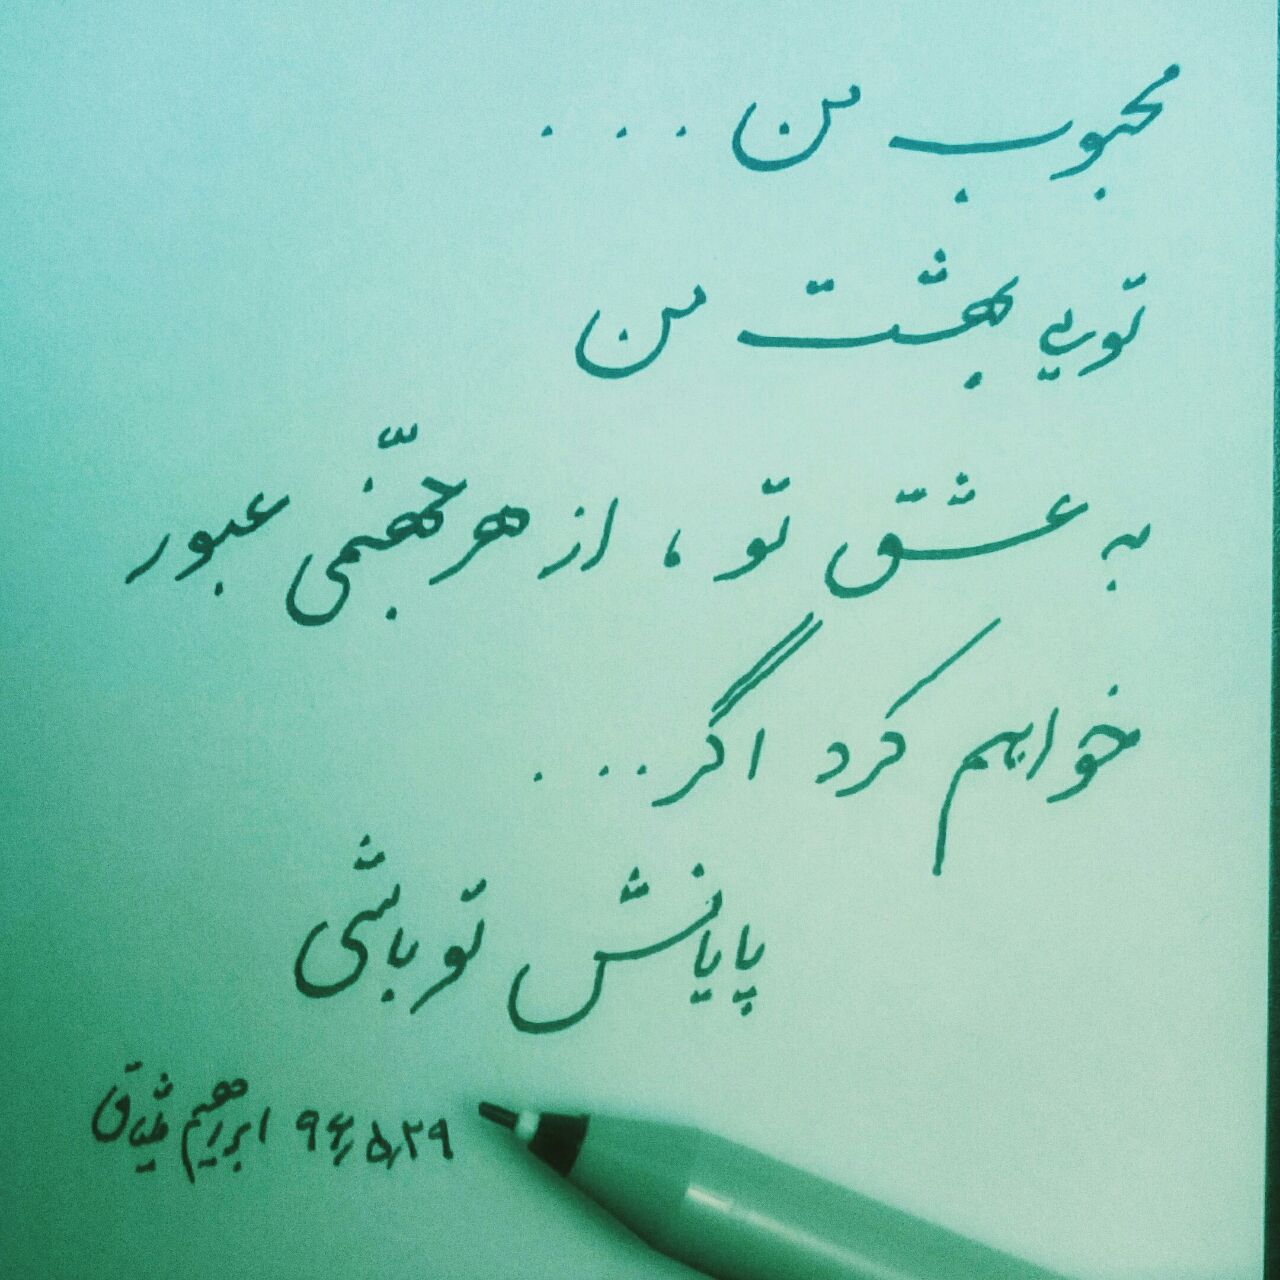 محبوب من . . .
تویی بهشت من
به عشق تو ، از هر جهنّمی عبور
خواهم کرد اگر . . .
پایانش تو باشی
۹۴٫۵٫۲۹ ابراهیم